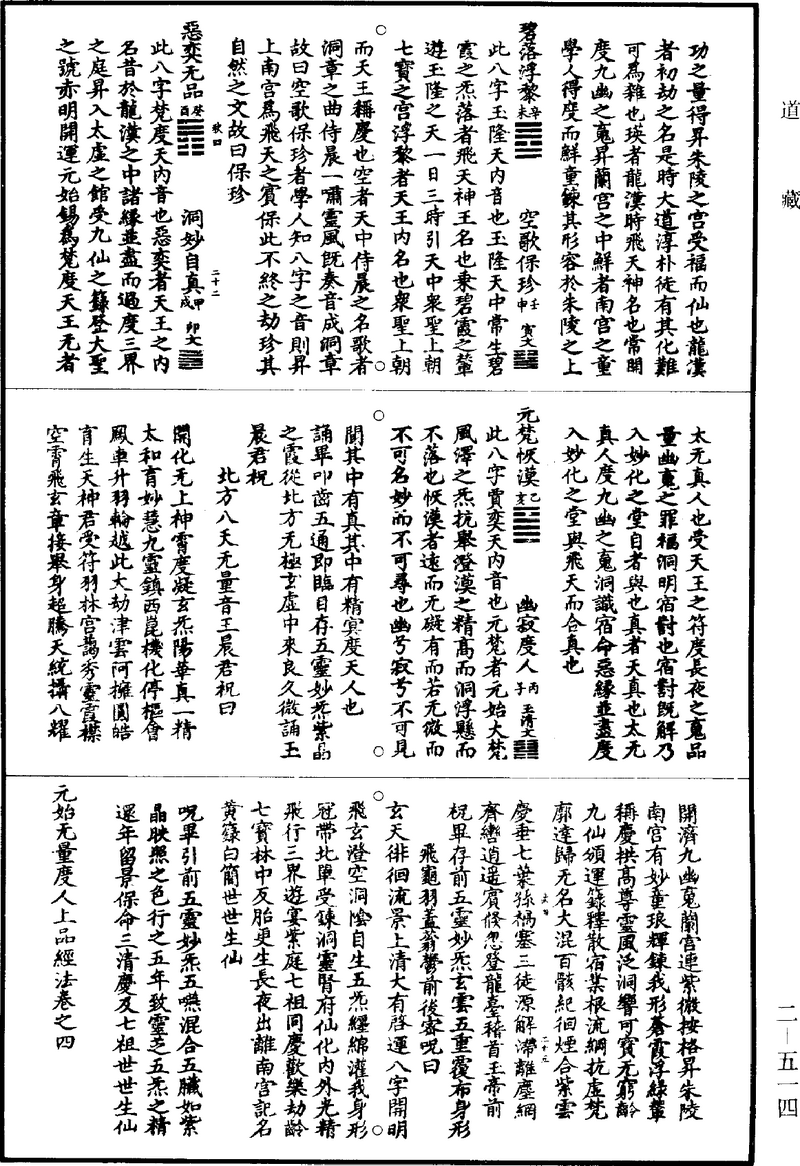 道藏
功之量得昇朱陵之宫受福而仙也龍漢
者初劫之名是時大道淳朴徒有其化難
可為雜也瑛者龍漢時飛天神名也常開
度九幽之䰟昇蘭宫之中鮮者南宫之童
學人得度而鮮童鍊其形容於朱陵之上
碧落浮黎辛未 空歌保珍壬申 寅文
此八字玉隆天內音也玉隆天中常生碧
霞之炁落者飛天神王名也乗碧霞之輦
遊玉隆之天一日三時引天中衆聖上朝
七寶之宫浮黎者天王內名也衆聖上朝
而天王稱慶也空者天中侍晨之名歌者
洞章之曲侍晨一嘯靈風旣奏音成洞章
故曰空歌保珍者學人知八字之音則昇
上南宫爲飛天之賓保此不終之劫珍其
自然之文故曰保珍
二十二
惡奕无品癸酉 洞妙自真甲戌 卯文
此八字梵度天內音也惡奕者天王之內
名昔於龍漢之中諸緣並盡而過度三界
之庭昇入太虛之館受九仙之籙登大聖
之號赤明開運元始錫爲梵度天王无者
太无真人也受天王之符度長夜之䰟品
量幽䰟之罪福洞明宿對也宿對旣解乃
入妙化之堂自者與也真者天真也太无
真人度九幽之䰟洞識宿命惡緣並盡度
入妙化之堂與飛天而合真也
元梵恢漠乙亥 幽寂度人丙子 玉清文
此八字賈奕天內音也元梵者元始大梵
風澤之炁抗舉澄漠之精高而洞浮懸而
不落也恢漠者遠而无礙有而若无微而
不可名妙而不可尋也幽兮寂兮不可見
聞其中有真其中有精㝠度天人也
誦畢叩齒五通即臨目存五靈妙炁紫晶
之霞從北方无極玄虛中來良久微誦玉
晨君祝
北方八天无量音王晨君祝曰
開化无上神霄度凝玄炁陽華真一精
太和育妙慧九靈鎮西崑機化停樞會
飈車升羽輪越此大劫津雲阿擁圓皓
育生天神君受符羽林宫藹秀靈霞襟
空霄飛玄章接舉身超騰天統攝八耀
開濟九幽䰟蘭宫連紫微按格昇朱陵
南宫有妙童琅輝鍊我形蒼霞浮綠輦
稱慶拱高尊靈風泛洞響可寶无窮齡
九仙頒運籙釋散宿某根流網抗虛梵
廓達歸无名大混百骸紀徊煙合紫雲
慶垂七葉孫禍塞三徒源解滯離塵網
齊巒逍遥賓倏忽登龍臺稽首玉帝前
祝畢存前五靈妙炁玄雲五重覆布身形
飛龜羽蓋蓊鬱前後密呪曰
玄天徘徊流景上清大有啓運八字開明
飛玄澄空洞隂自生五炁纏綿灌我身形
冠帶北單受鍊洞靈腎府仙化內外光精
飛行三界遊宴紫庭七祖同慶歡樂劫齡
七寶林中反胎更生長夜出離南宫記名
黄籙白簡世世生仙
呪畢引前五靈妙炁五嚥混合五臟如紫
晶映煕之色行之五年致靈芝五炁之精
還年留景保命三清慶及七祖世世生仙
元始无量度人上品經法卷之四
二—五一四